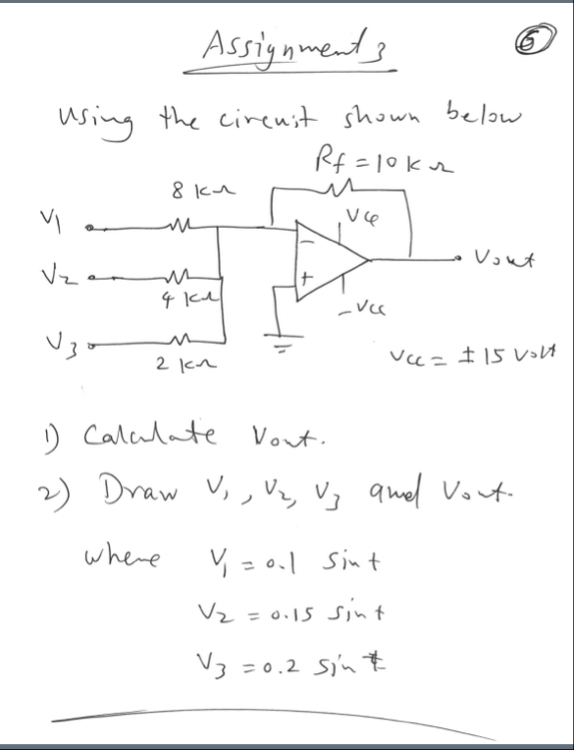 Assignment 3
5
Using the circuit shown below
Rf = 10 kΩ
8 kΩ
V1
Vcc
Vout
V2
4 kΩ
-Vcc
V3
2 kΩ
Vcc = ± 15 Volt
1) Calculate Vout.
2) Draw V1, V2, V3 and Vout.
where V1 = 0.1 sin t
V2 = 0.15 sin t
V3 = 0.2 sin t